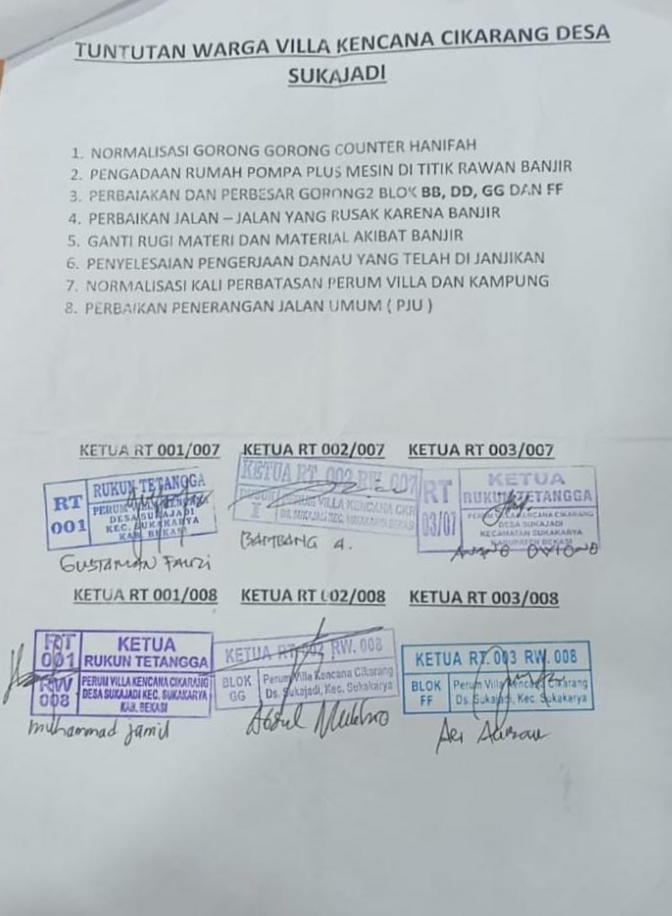 TUNTUTAN WARGA VILLA KENCANA CIKARANG DESA
SUKAJADI
1. NORMALISASI GORONG GORONG COUNTER HANIFAH
2. PENGADAAN RUMAH POMPA PLUS MESIN DI TITIK RAWAN BANJIR
3. PERBAIAKAN DAN PERBESAR GORONG2 BLOK BB, DD, GG DAN FF
4. PERBAIKAN JALAN – JALAN YANG RUSAK KARENA BANJIR
5. GANTI RUGI MATERI DAN MATERIAL AKIBAT BANJIR
6. PENYELESAIAN PENGERJAAN DANAU YANG TELAH DI JANJIKAN
7. NORMALISASI KALI PERBATASAN PERUM VILLA DAN KAMPUNG
8. PERBAIKAN PENERANGAN JALAN UMUM ( PJU )
KETUA RT 001/007 KETUA RT 002/007 KETUA RT 003/007
RT 001
RUKUN TETANGGA
DESA SUKAJADI
KEC. SUKAKARYA
KAB. BEKASI
KETUA RT 002 RW. 007
RT 03/07
KETUA
RUKUN TETANGGA
DESA SUKAJADI
KECAMATAN SUKAKARYA
KABUPATEN BEKASI
GUSTAMAN FAUZI
BAMBANG A.
KETUA RT 001/008 KETUA RT 002/008 KETUA RT 003/008
RT 001
RW 008
KETUA
RUKUN TETANGGA
PERUM VILLA KENCANA CIKARANG
DESA SUKAJADI KEC. SUKAKARYA
KAB. BEKASI
KETUA RT. RW. 008
BLOK GG
Perum Villa Kencana Cikarang
Ds. Sukajadi, Kec. Sukakarya
KETUA RT. 003 RW. 008
BLOK FF
Perum Villa Kencana Cikarang
Ds. Sukajadi, Kec. Sukakarya
Muhammad Jamil
Abdul